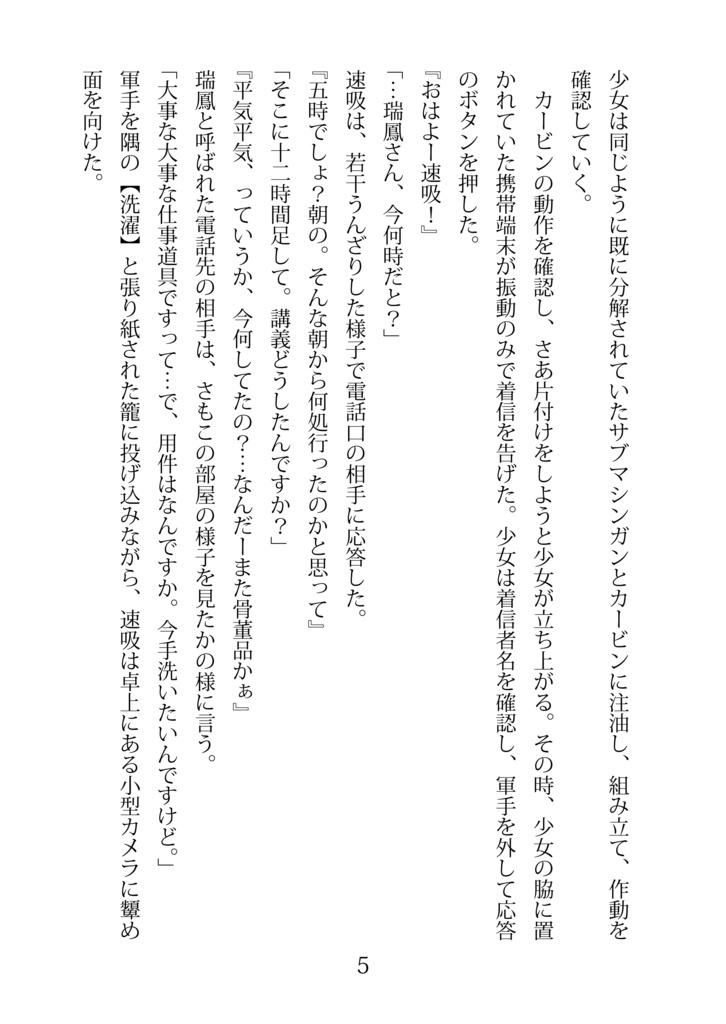 少女は同じように既に分解されていたサブマシンガンとカービンに注油し、組み立て、作動を
確認していく。
　カービンの動作を確認し、さあ片付けをしようと少女が立ち上がる。その時、少女の脇に置
かれていた携帯端末が振動のみで着信を告げた。少女は着信者名を確認し、軍手を外して応答
のボタンを押した。
『おはよー速吸！』
「…瑞鳳さん、今何時だと？」
速吸は、若干うんざりした様子で電話口の相手に応答した。
『五時でしょ？朝の。そんな朝から何処行ったのかと思って』
「そこに十二時間足して。講義どうしたんですか？」
『平気平気、っていうか、今何してたの？…なんだーまた骨董品かぁ』
瑞鳳と呼ばれた電話先の相手は、さもこの部屋の様子を見たかの様に言う。
「大事な大事な仕事道具ですって…で、用件はなんですか。今手洗いたいんですけど。」
軍手を隅の【洗濯】と張り紙された籠に投げ込みながら、速吸は卓上にある小型カメラに顰め
面を向けた。
5